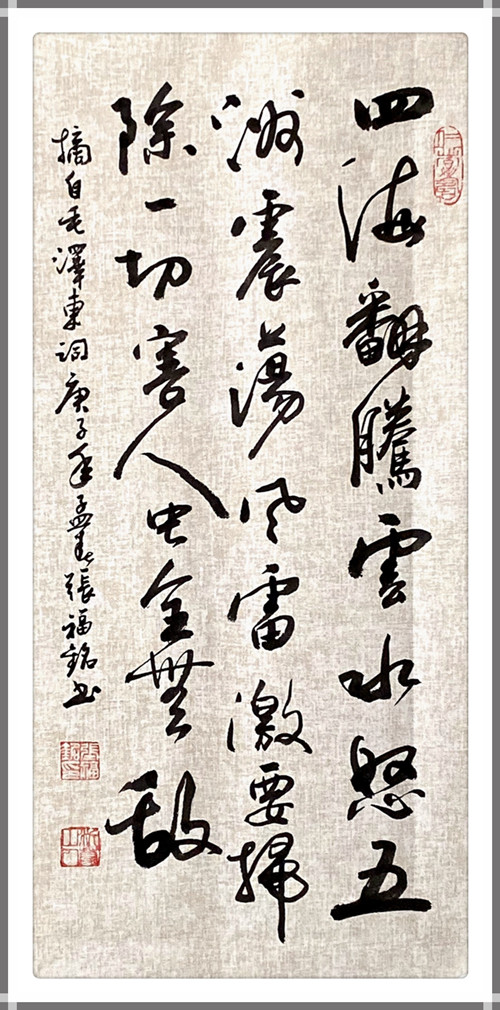 四海翻騰雲水怒五
洲震蕩風雷激要掃
除一切害人虫全無敵
摘自毛澤東詞庚子年孟春張福銘书